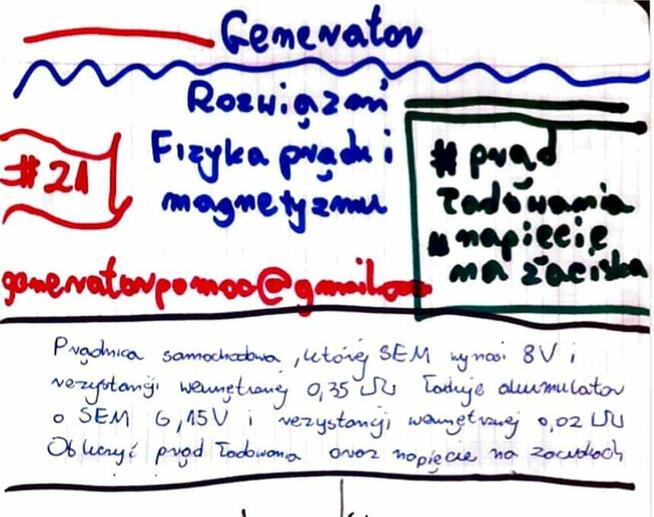 Generator
Rozwiązań
Fizyka prądu i
magnetyzmu
#21
# prąd
ładowania
# napięcie
na zaciska
generatorpomoc@gmail.com
Prądnica samochodowa, której SEM wynosi 8V i
rezystancji wewnętrznej 0,35 Ω ładuje akumulator
o SEM 6,15V i rezystancji wewnętrznej 0,02 Ω
Obliczyć prąd ładowania oraz napięcie na zaciskach